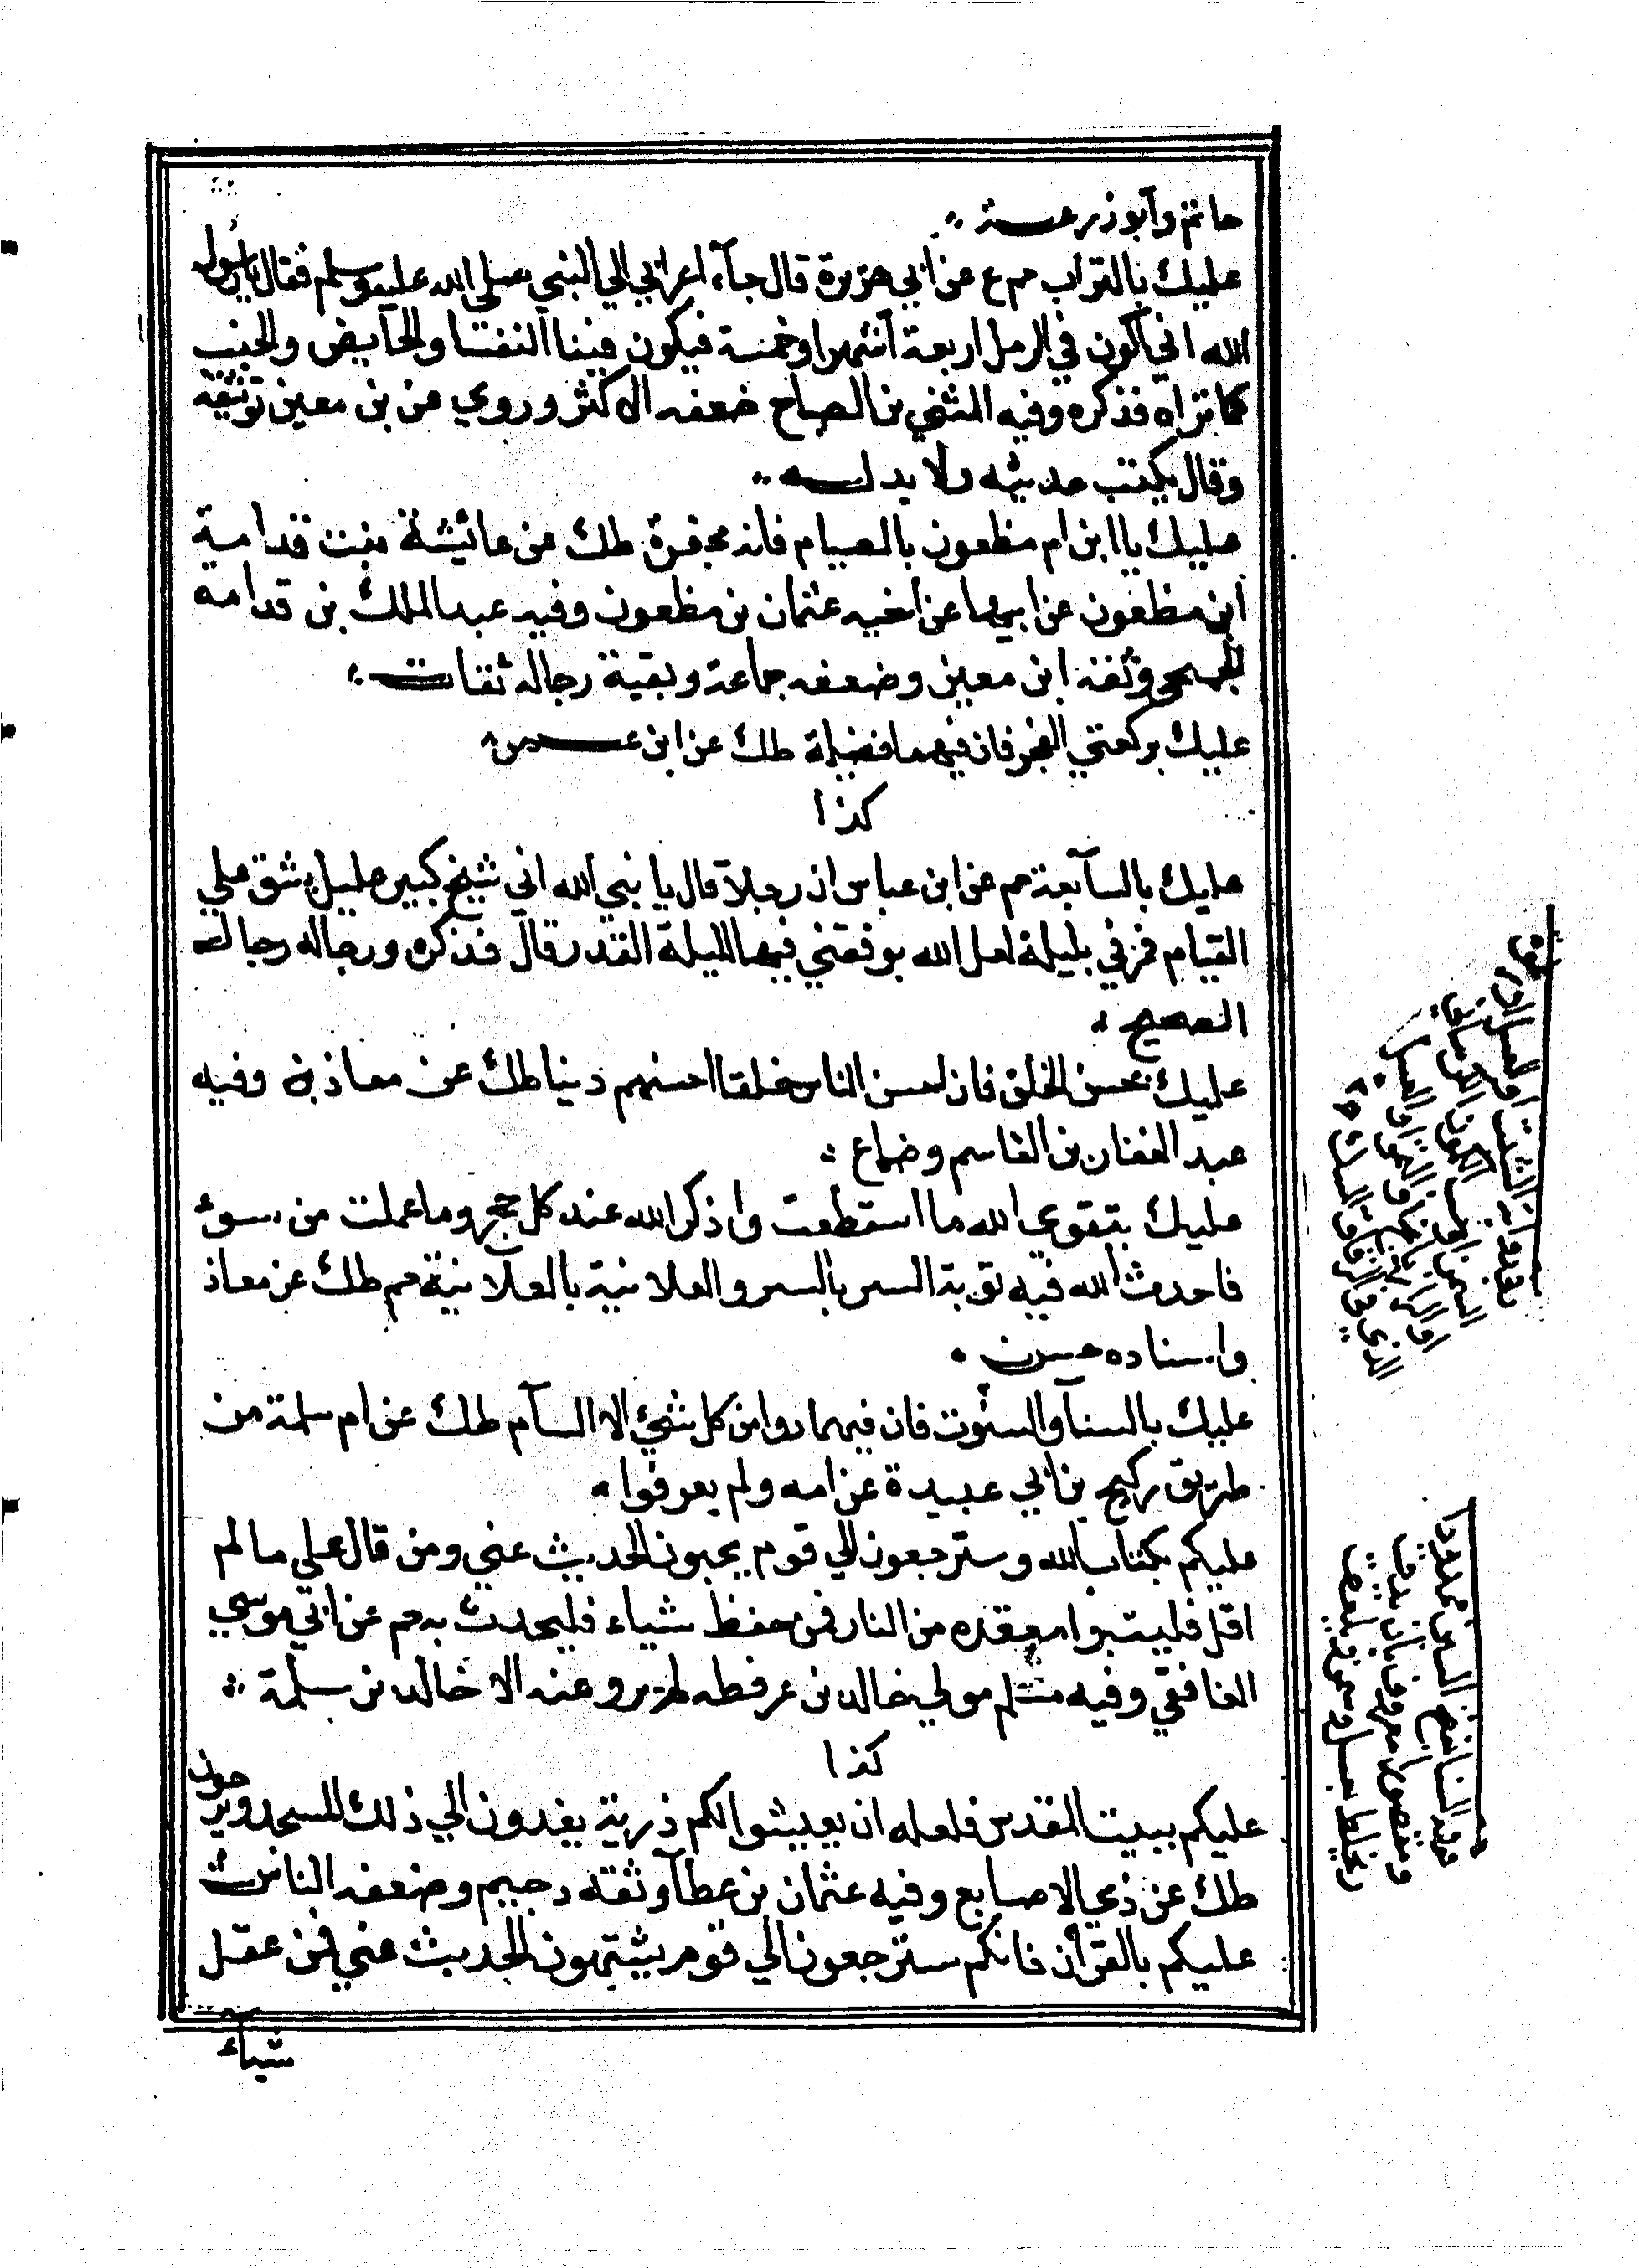 حاتم وابوذرعة
عليك بالتراب حم ع عن ابي هريرة قال جآء اعرابي الي النبي صلي الله عليه وسلم فقال يا رسول
الله اني اكون في الرمل اربعة اشهر او خمسة فيكون فينا النفسا والحآيض والجنب
كما تراه فذكره وفيه المثني بن الصباح ضعفه الاكثر وروي عن بن معين توثيقه
وقال يكتب حديثه ولا يد له
عليك يا ابن ام مظعون بالصيام فانه مجفرة طك عن عائيشة بنت قدامة
ابن مظعون عن ابيها عن اخيه عثمان بن مظعون وفيه عبد الملك بن قدامه
الجمحي وثقه ابن معين وضعفه جماعة وبقية رجاله ثقات
عليك بركعتي الفجر فان فيهما فضيلة طك عن ابن عمر
كذا
عليك بالسآبعة حم عن ابن عباس ان رجلا قال يا نبي الله اني شيخ كبير عليل يشق علي
القيام فمرني بليلة لعل الله يوفقني فيها لليلة القدر قال فذكره ورجاله رجال
الصحيح
عليك بحسن الخلق فان احسن الناس خلقا احسنهم دينا طك عن معاذ بن وفيه
عبد الغفار بن القاسم وضاع
عليك بتقوي الله ما استطعت واذكر الله عند كل حجر وما عملت من سوء
فاحدث الله فيه توبة السر بالسر والعلانية بالعلانية حم طك عن معاذ
واسناده حسن
عليك بالسنآ والسنوت فان فيهما دوا من كل شيء الا السآم طك عن ام سلمة من
طريق ركيح بن ابي عبيدة عن امه ولم يعرفوا
عليكم بكتاب الله وسترجعون الي قوم يحبون الحديث عني ومن قال علي ما لم
اقل فليتبوا معقده من النار فمن حفظ شياء فليحدث به حم عن ابي موسي
الغافقي وفيه مسلم مولي خالد بن عرفطه لم يرو عنه الا خالد بن سلمة
كذا
عليكم ببيت المقدس فلعله ان يعيثوا لكم ذرية يغدون الي ذلك المسجد ويروحون
طك عن ذي الاصابع وفيه عثمان بن عطآ وثقه دحيم وضعفه الناس
عليكم بالقرآن فانكم سترجعون الي قوم يشتهون الحديث عني فمن عقل
شياء